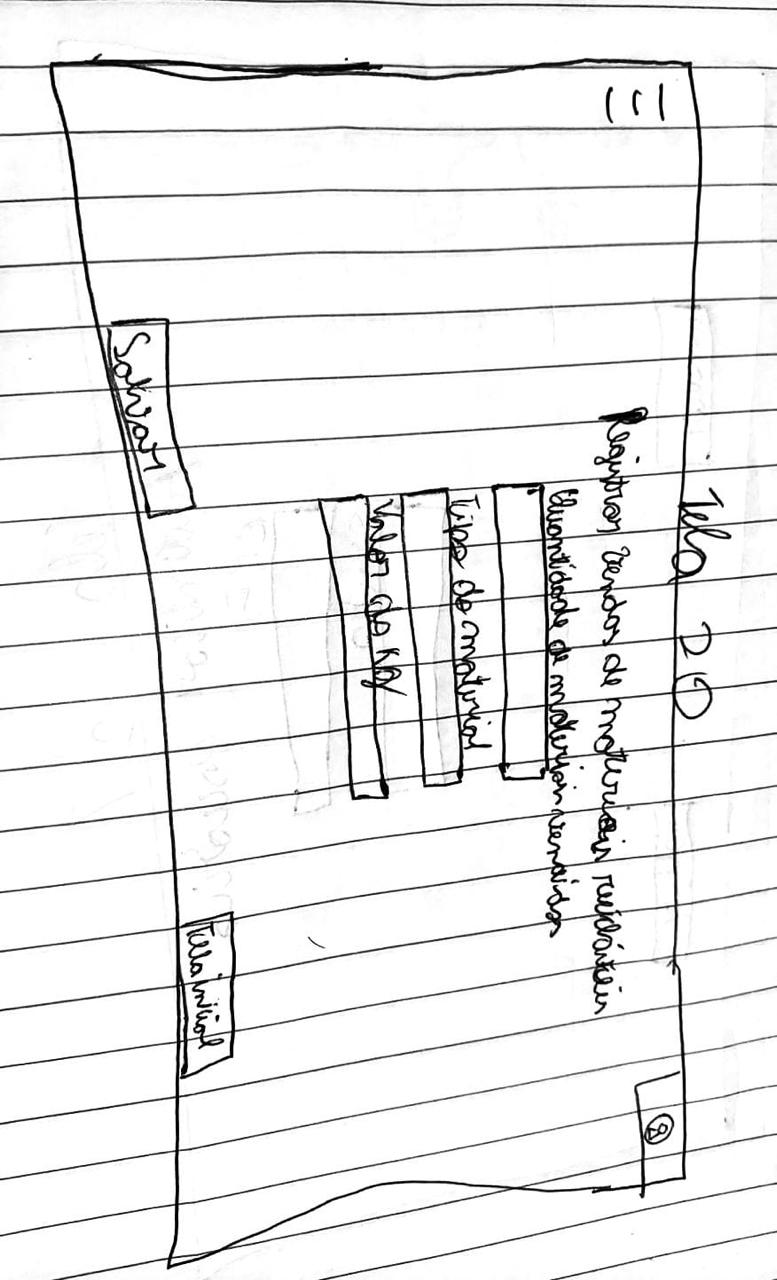 Tela 20
Registrar vendas de materiais recicláveis
Quantidade de materiais vendidos
Tipo do material
Valor do Kg
Salvar
Tela inicial